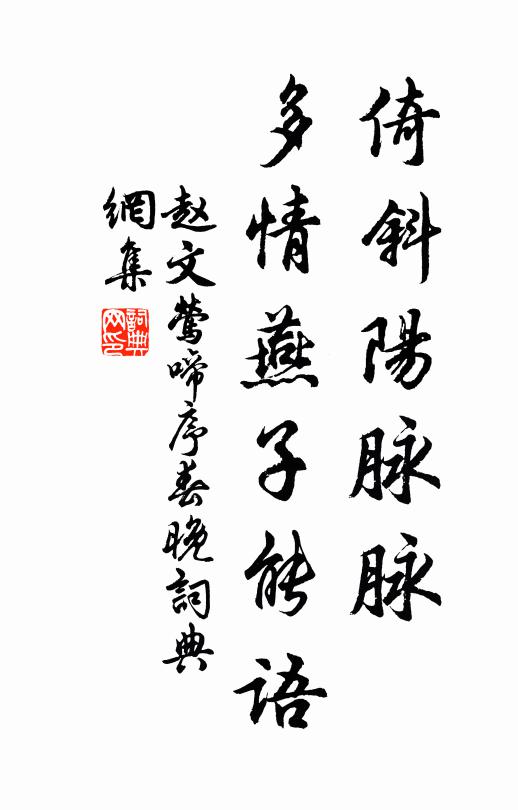 倚斜陽脉脉
多情燕子能語
赵文鶯啼序春晚詞典
網集
詞典
网印